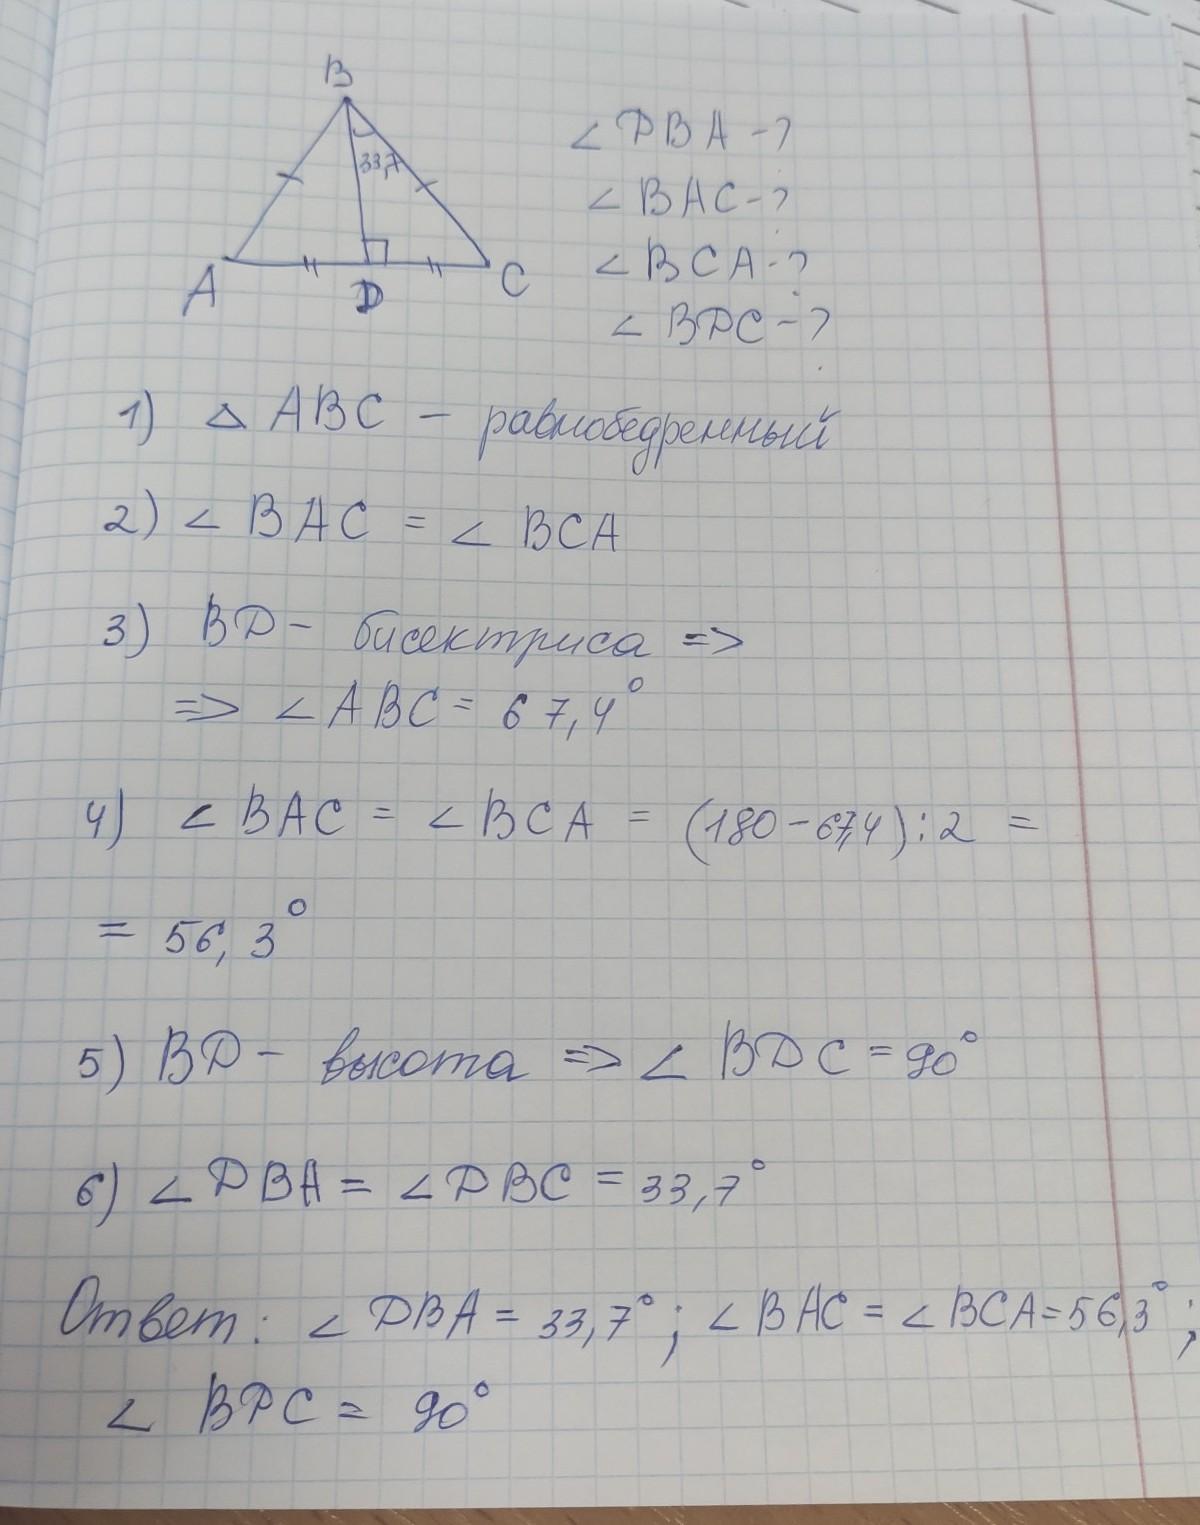 B
33,7
A
D
C
∠DBA-?
∠BAC-?
∠BCA-?
∠BDC-?
1) △ABC – равнобедренный
2) ∠BAC = ∠BCA
3) BD – бисектриса =>
=> ∠ABC = 67,4°
4) ∠BAC = ∠BCA = (180-67,4):2 =
= 56,3°
5) BD – высота => ∠BDC = 90°
6) ∠DBA = ∠DBC = 33,7°
Ответ: ∠DBA = 33,7°; ∠BAC = ∠BCA = 56,3°;
∠BDC = 90°